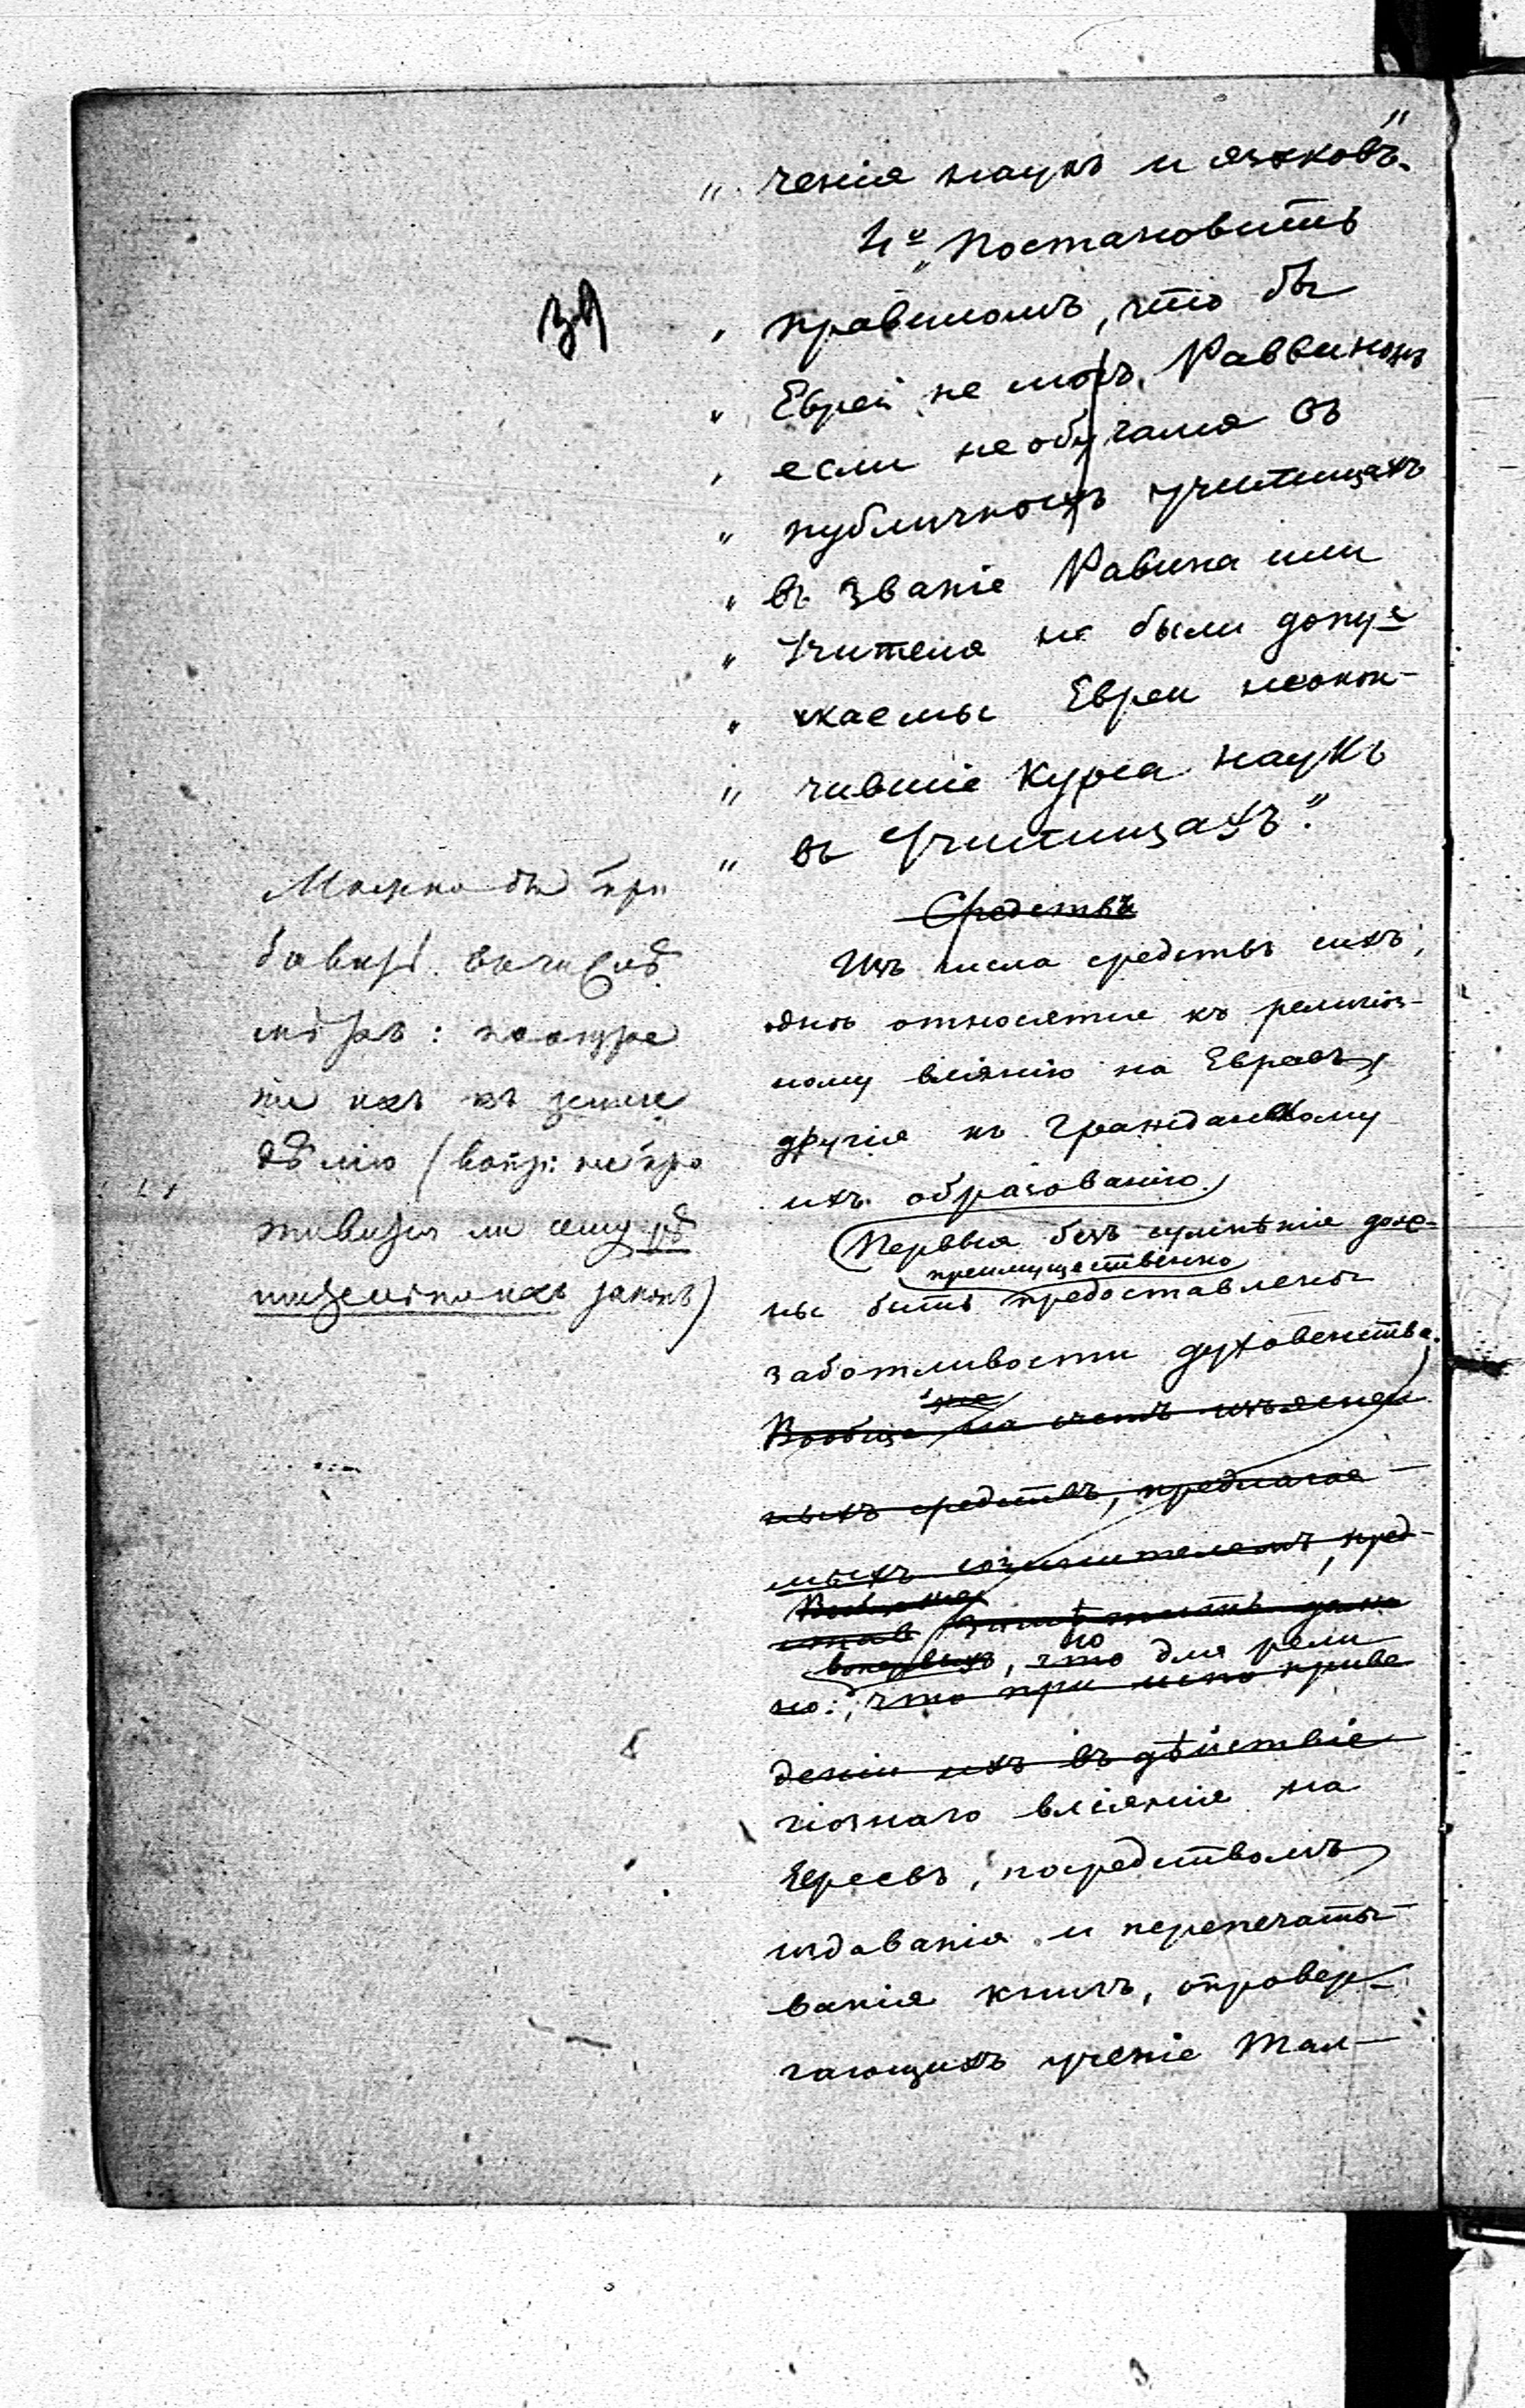 „ ченія наукъ и языковъ.“
4е „Постановить
„ правиломъ, что бы
„ Еврей не могъ. Раввиномъ
„ если не обучался въ
„ публичныхъ училищахъ
„ въ званіе Равина или
„ Учителя не были допу=
„ скаемы Евреи неокон-
„ чившіе курса наукъ
„ въ Училищахъ.“
Средствъ
Изъ числа средствъ сихъ,
однѣ относятся къ религіоз-
ному вліянію на Евреевъ,
другія къ гражданскому
ихъ образованію.
Первыя безъ сумнѣнія долж-
преимущественно
ны быть предоставлены
заботливости духовенства.
Вообще на счетъ изъяснен
ныхъ средствъ, предлагае-
мыхъ сочинителемъ, пред-
вопервыхъ, что для рели
но:, что при приве
деніи ихъ въ дѣйствіе
гіознаго вліянія на
Евреевъ, посредствомъ
издаванія и перепечаты-
ванія книгъ, опровер-
гающихъ ученіе Тал-
39
Можно бы при
бавить въ числѣ
мѣръ: поощре
ніе ихъ къ земле
дѣлію (вопр: не про
тивится ли сему рѣ
шительно ихъ законъ)